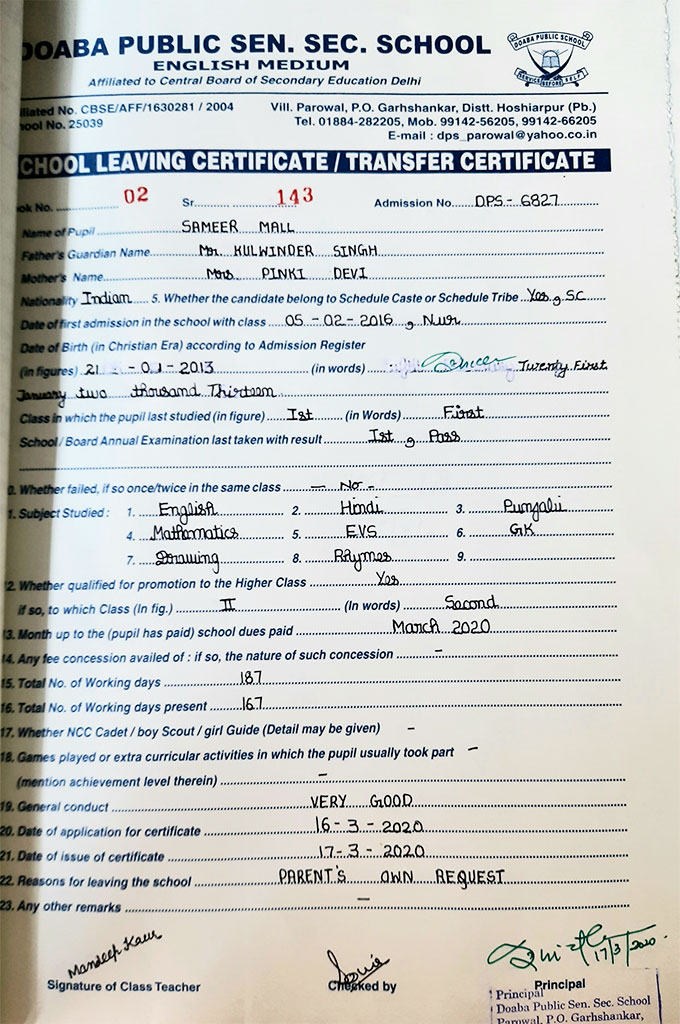 DOABA PUBLIC SEN. SEC. SCHOOL
ENGLISH MEDIUM
Affiliated to Central Board of Secondary Education Delhi
DOABA PUBLIC SCHOOL
SERVICE BEFORE SELF
iliated No. CBSE/AFF/1630281 / 2004
Vill. Parowal, P.O. Garhshankar, Distt. Hoshiarpur (Pb.)
ool No. 25039
Tel. 01884-282205, Mob. 99142-56205, 99142-66205
E-mail : dps_parowal@yahoo.co.in
CHOOL LEAVING CERTIFICATE / TRANSFER CERTIFICATE
ok No. 02 Sr. 143 Admission No. DPS - 6827
Name of Pupil SAMEER MALL
Father's Guardian Name Mr. KULWINDER SINGH
Mother's Name Mrs PINKI DEVI
Nationality Indian 5. Whether the candidate belong to Schedule Caste or Schedule Tribe Yes, SC
Date of first admission in the school with class 05 - 02 - 2016, Nur
Date of Birth (in Christian Era) according to Admission Register
(in figures) 21 - 01 - 2013 (in words) Twenty First
January two thousand Thirteen
Class in which the pupil last studied (in figure) Ist (in Words) First
School / Board Annual Examination last taken with result Ist, Pass
0. Whether failed, if so once/twice in the same class — No -
1. Subject Studied : 1. English 2. Hindi 3. Punjabi
4. Mathematics 5. EVS 6. GK
7. Drawing 8. Rhymes 9.
2. Whether qualified for promotion to the Higher Class Yes
if so, to which Class (In fig.) II (In words) Second
13. Month up to the (pupil has paid) school dues paid March 2020
14. Any fee concession availed of : if so, the nature of such concession -
15. Total No. of Working days 187
16. Total No. of Working days present 167
17. Whether NCC Cadet / boy Scout / girl Guide (Detail may be given) -
18. Games played or extra curricular activities in which the pupil usually took part -
(mention achievement level therein) -
19. General conduct VERY GOOD
20. Date of application for certificate 16 - 3 - 2020
21. Date of issue of certificate 17 - 3 - 2020
22. Reasons for leaving the school PARENT'S OWN REQUEST
23. Any other remarks —
Mandeep Kaur
17/3/2020
Signature of Class Teacher Checked by Principal
Principal
Doaba Public Sen. Sec. School
Parowal, P.O. Garhshankar,